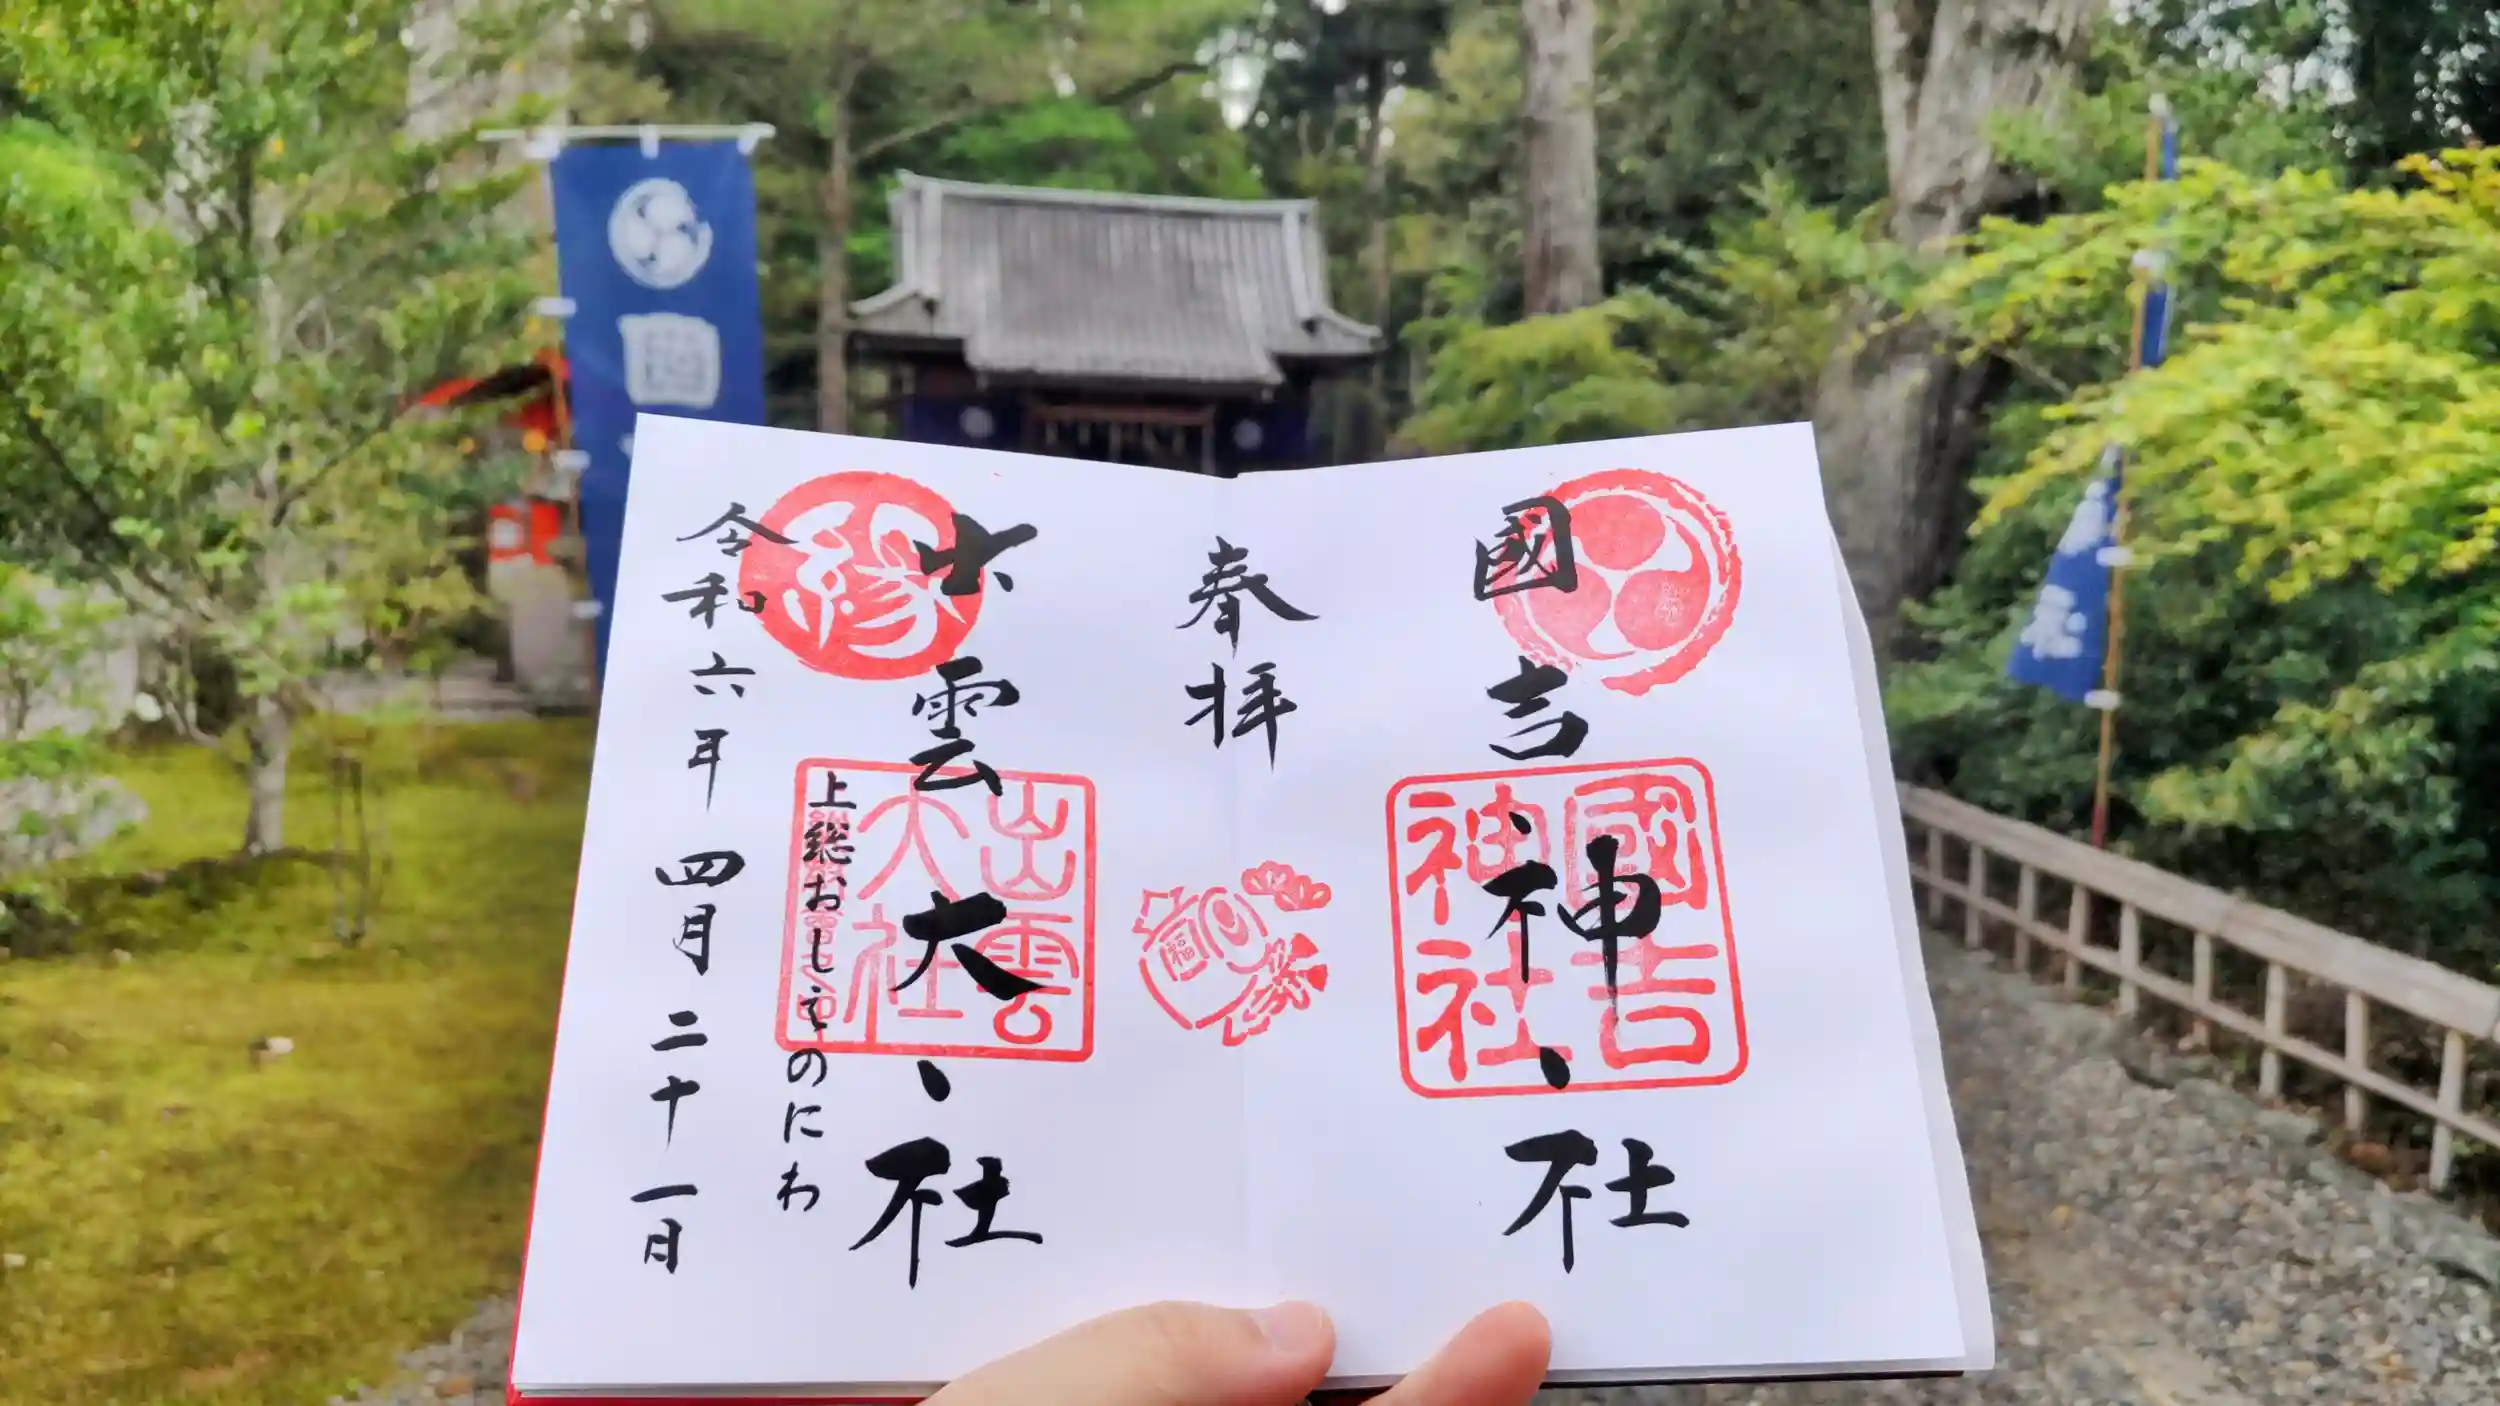 國吉神社
國吉
神社
奉拝
福
出雲大社
出雲
大社
縁
上総おしゑのにわ
令和六年四月二十一日
國